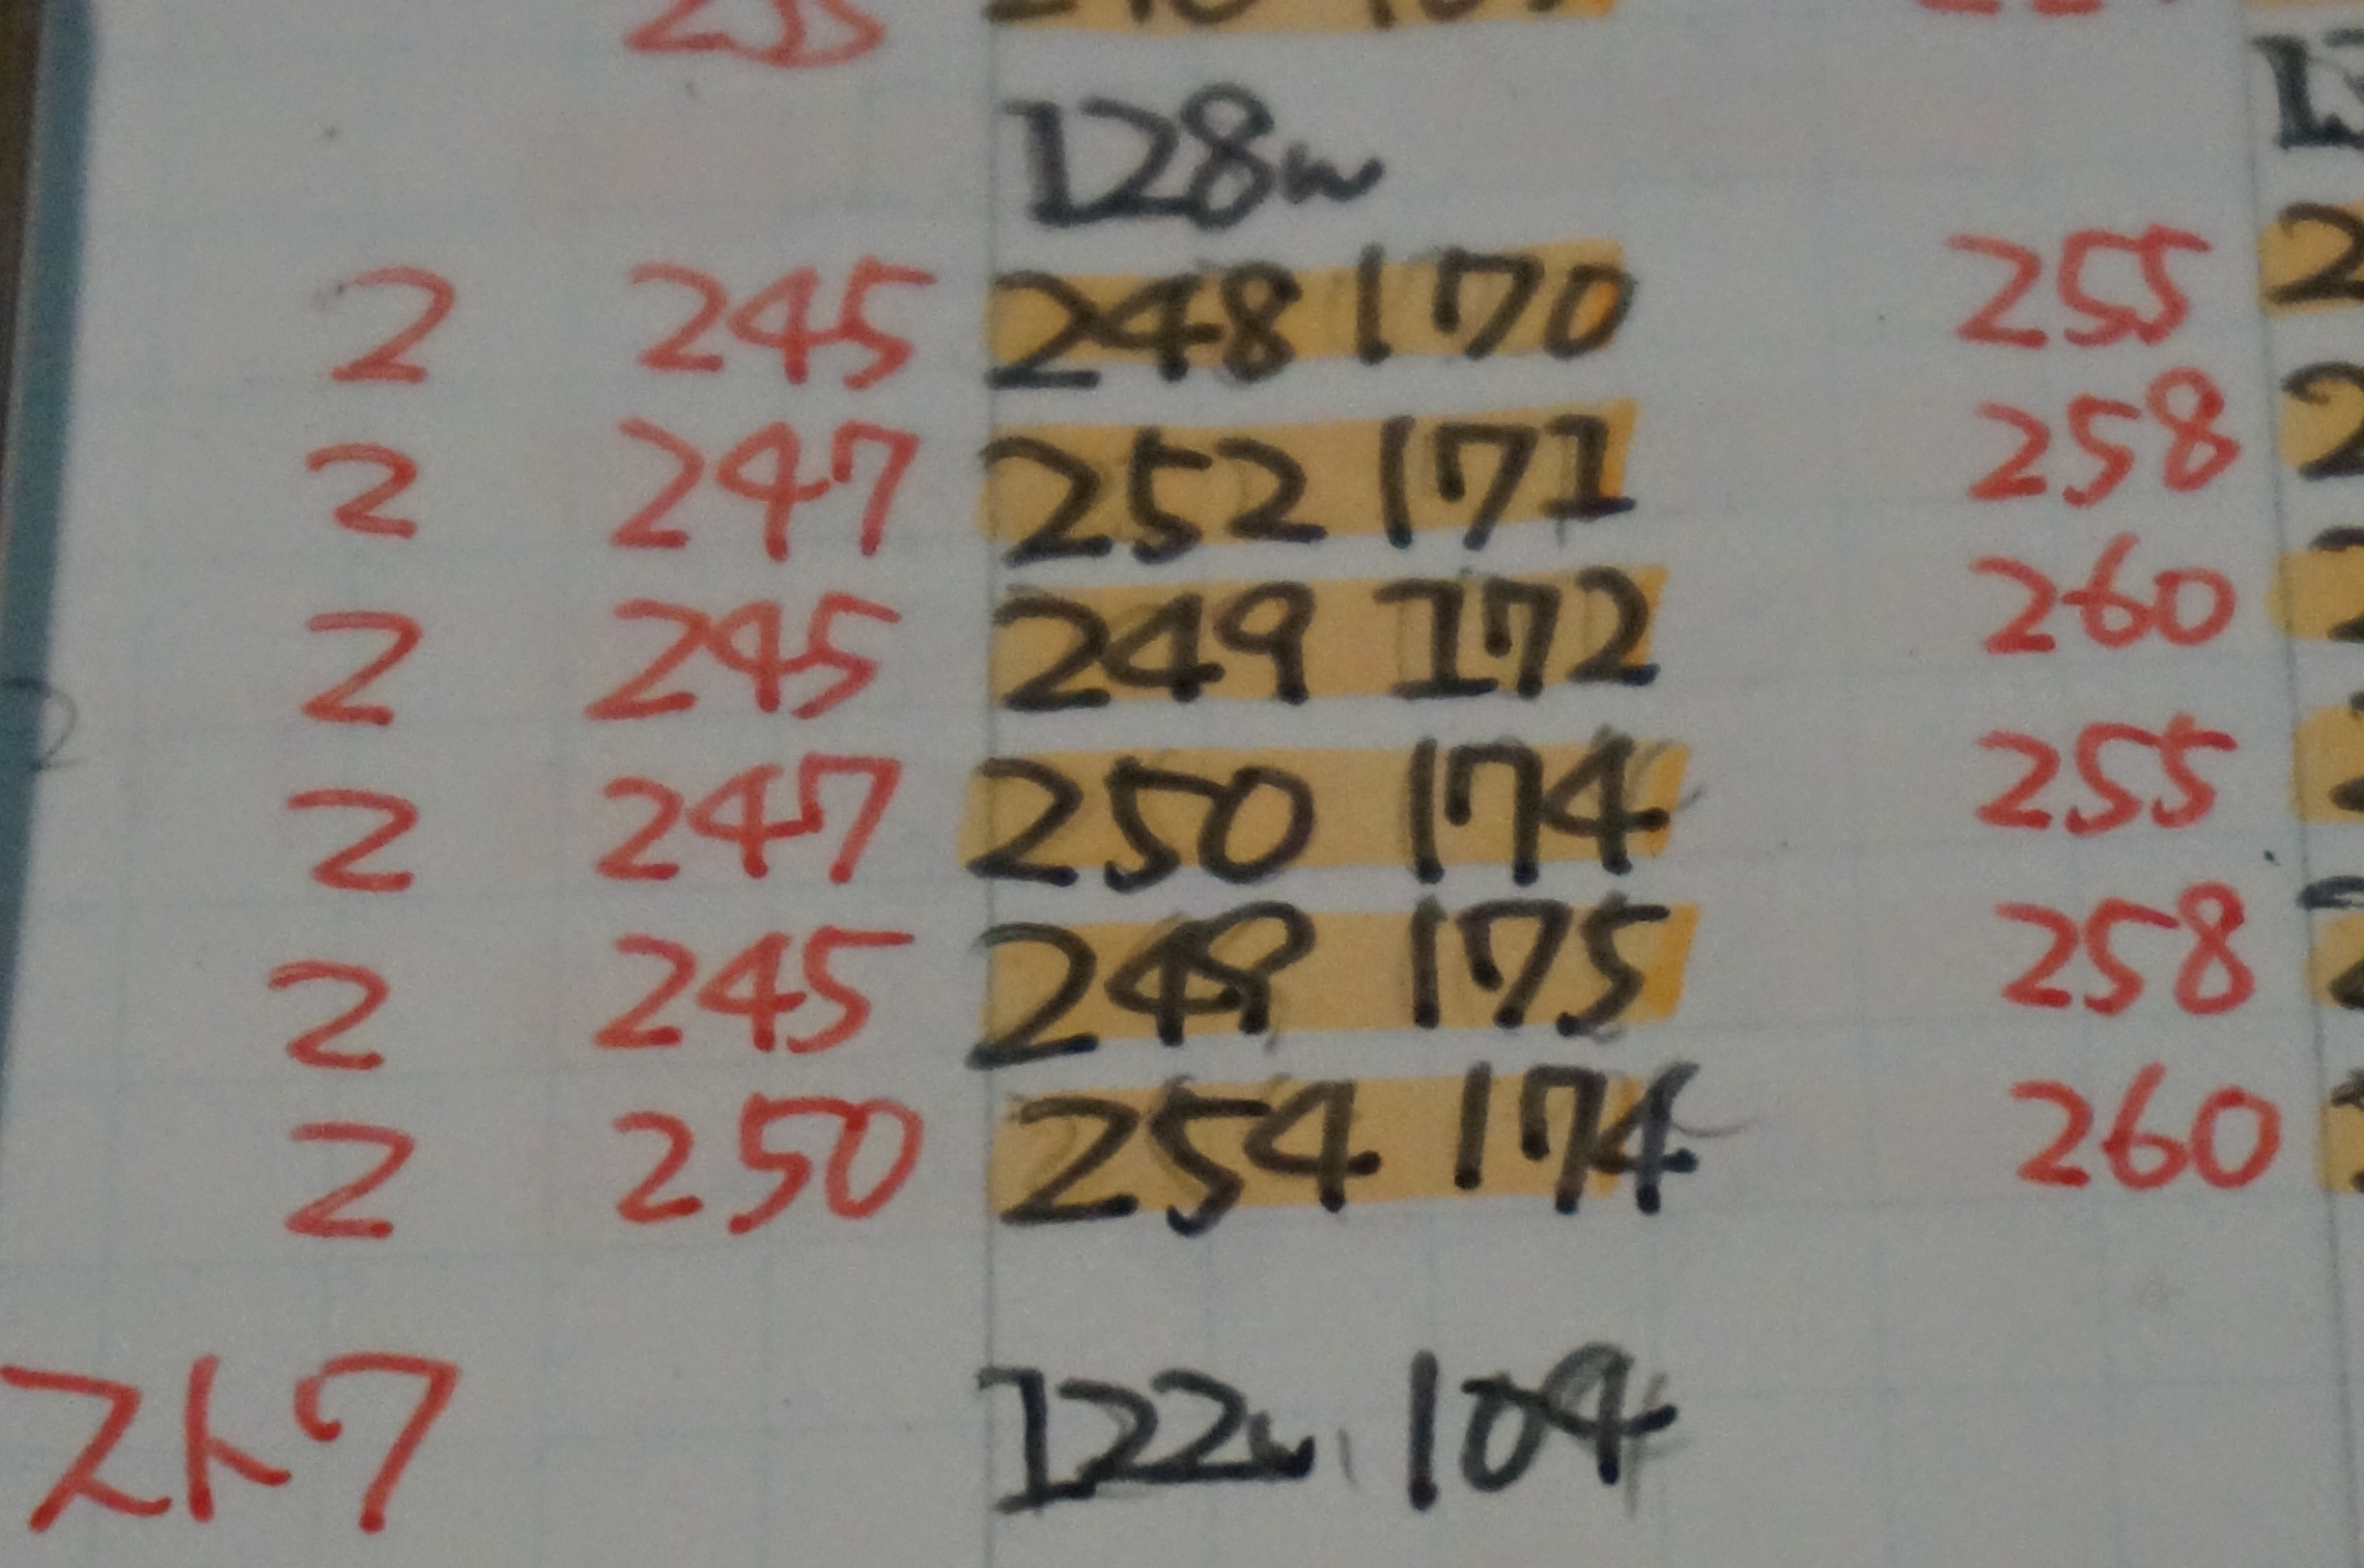 128w
2 245 248 170 255
2 247 252 171 258
2 245 249 172 260
2 247 250 174 255
2 245 249 175 258
2 250 254 174 260
ストワ 122w 104